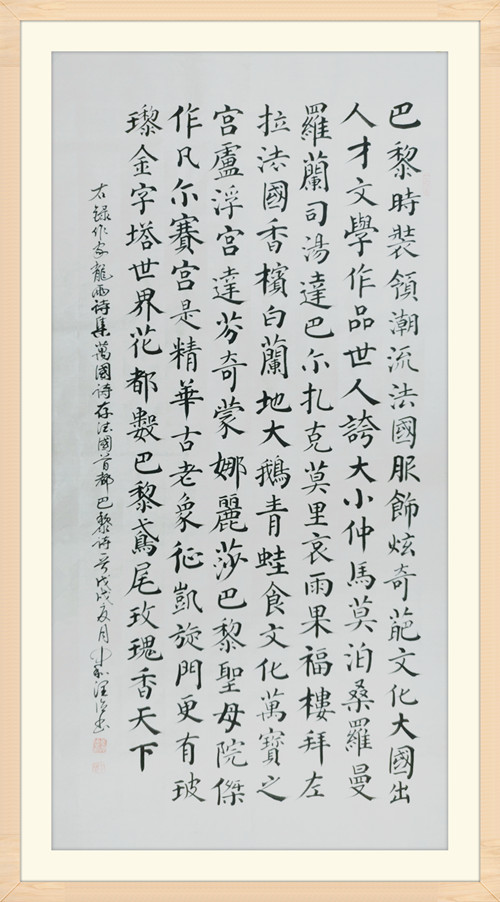 巴黎時裝領潮流法國服飾炫奇葩文化大國出
人才文學作品世人誇大小仲馬莫泊桑羅曼
羅蘭司湯達巴尔扎克莫里哀雨果福樓拜左
拉法國香檳白蘭地大鵝青蛙食文化萬寶之
宮盧浮宮達芬奇蒙娜麗莎巴黎聖母院傑
作凡尔賽宮是精華古老象征凱旋門更有玻
璨金字塔世界花都數巴黎鳶尾玫瑰香天下
右録作家龍西詩集萬國詩存法國首都巴黎詩一首戊戌夏月